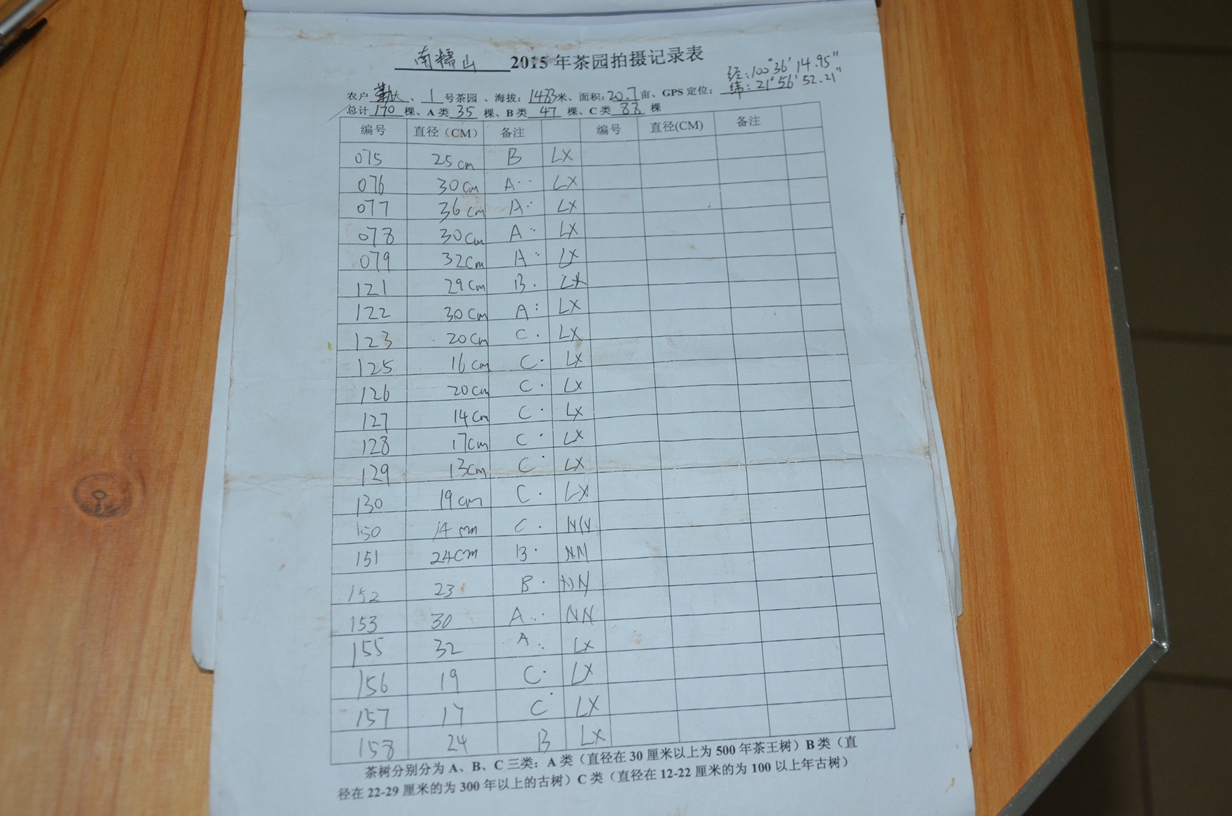 南糯山 2015年茶园拍摄记录表
经:100°36'14.95"
农户 、1号茶园、海拔:1483米、面积:20.7亩、GPS定位: 纬:21°56'52.21"
总计170棵、A类35棵、B类47棵、C类88棵
编号 直径(CM) 备注 编号 直径(CM) 备注
075 25cm B LX
076 30cm A·· LX
077 36cm A·· LX
078 30cm A·· LX
079 32cm A· LX
121 29cm B· LX
122 30cm A: LX
123 20cm C· LX
125 16cm C· LX
126 20cm C· LX
127 14cm C· LX
128 17cm C· LX
129 13cm C· LX
130 19cm C· LX
150 14cm C· NN
151 24cm B· NN
152 23 B· NN
153 30 A·· NN
155 32 A·· LX
156 19 C· LX
157 17 C LX
158 24 B LX
茶树分别分为A、B、C三类:A类(直径在30厘米以上为500年茶王树)B类(直
径在22-29厘米的为300年以上的古树)C类(直径在12-22厘米的为100以上年古树)